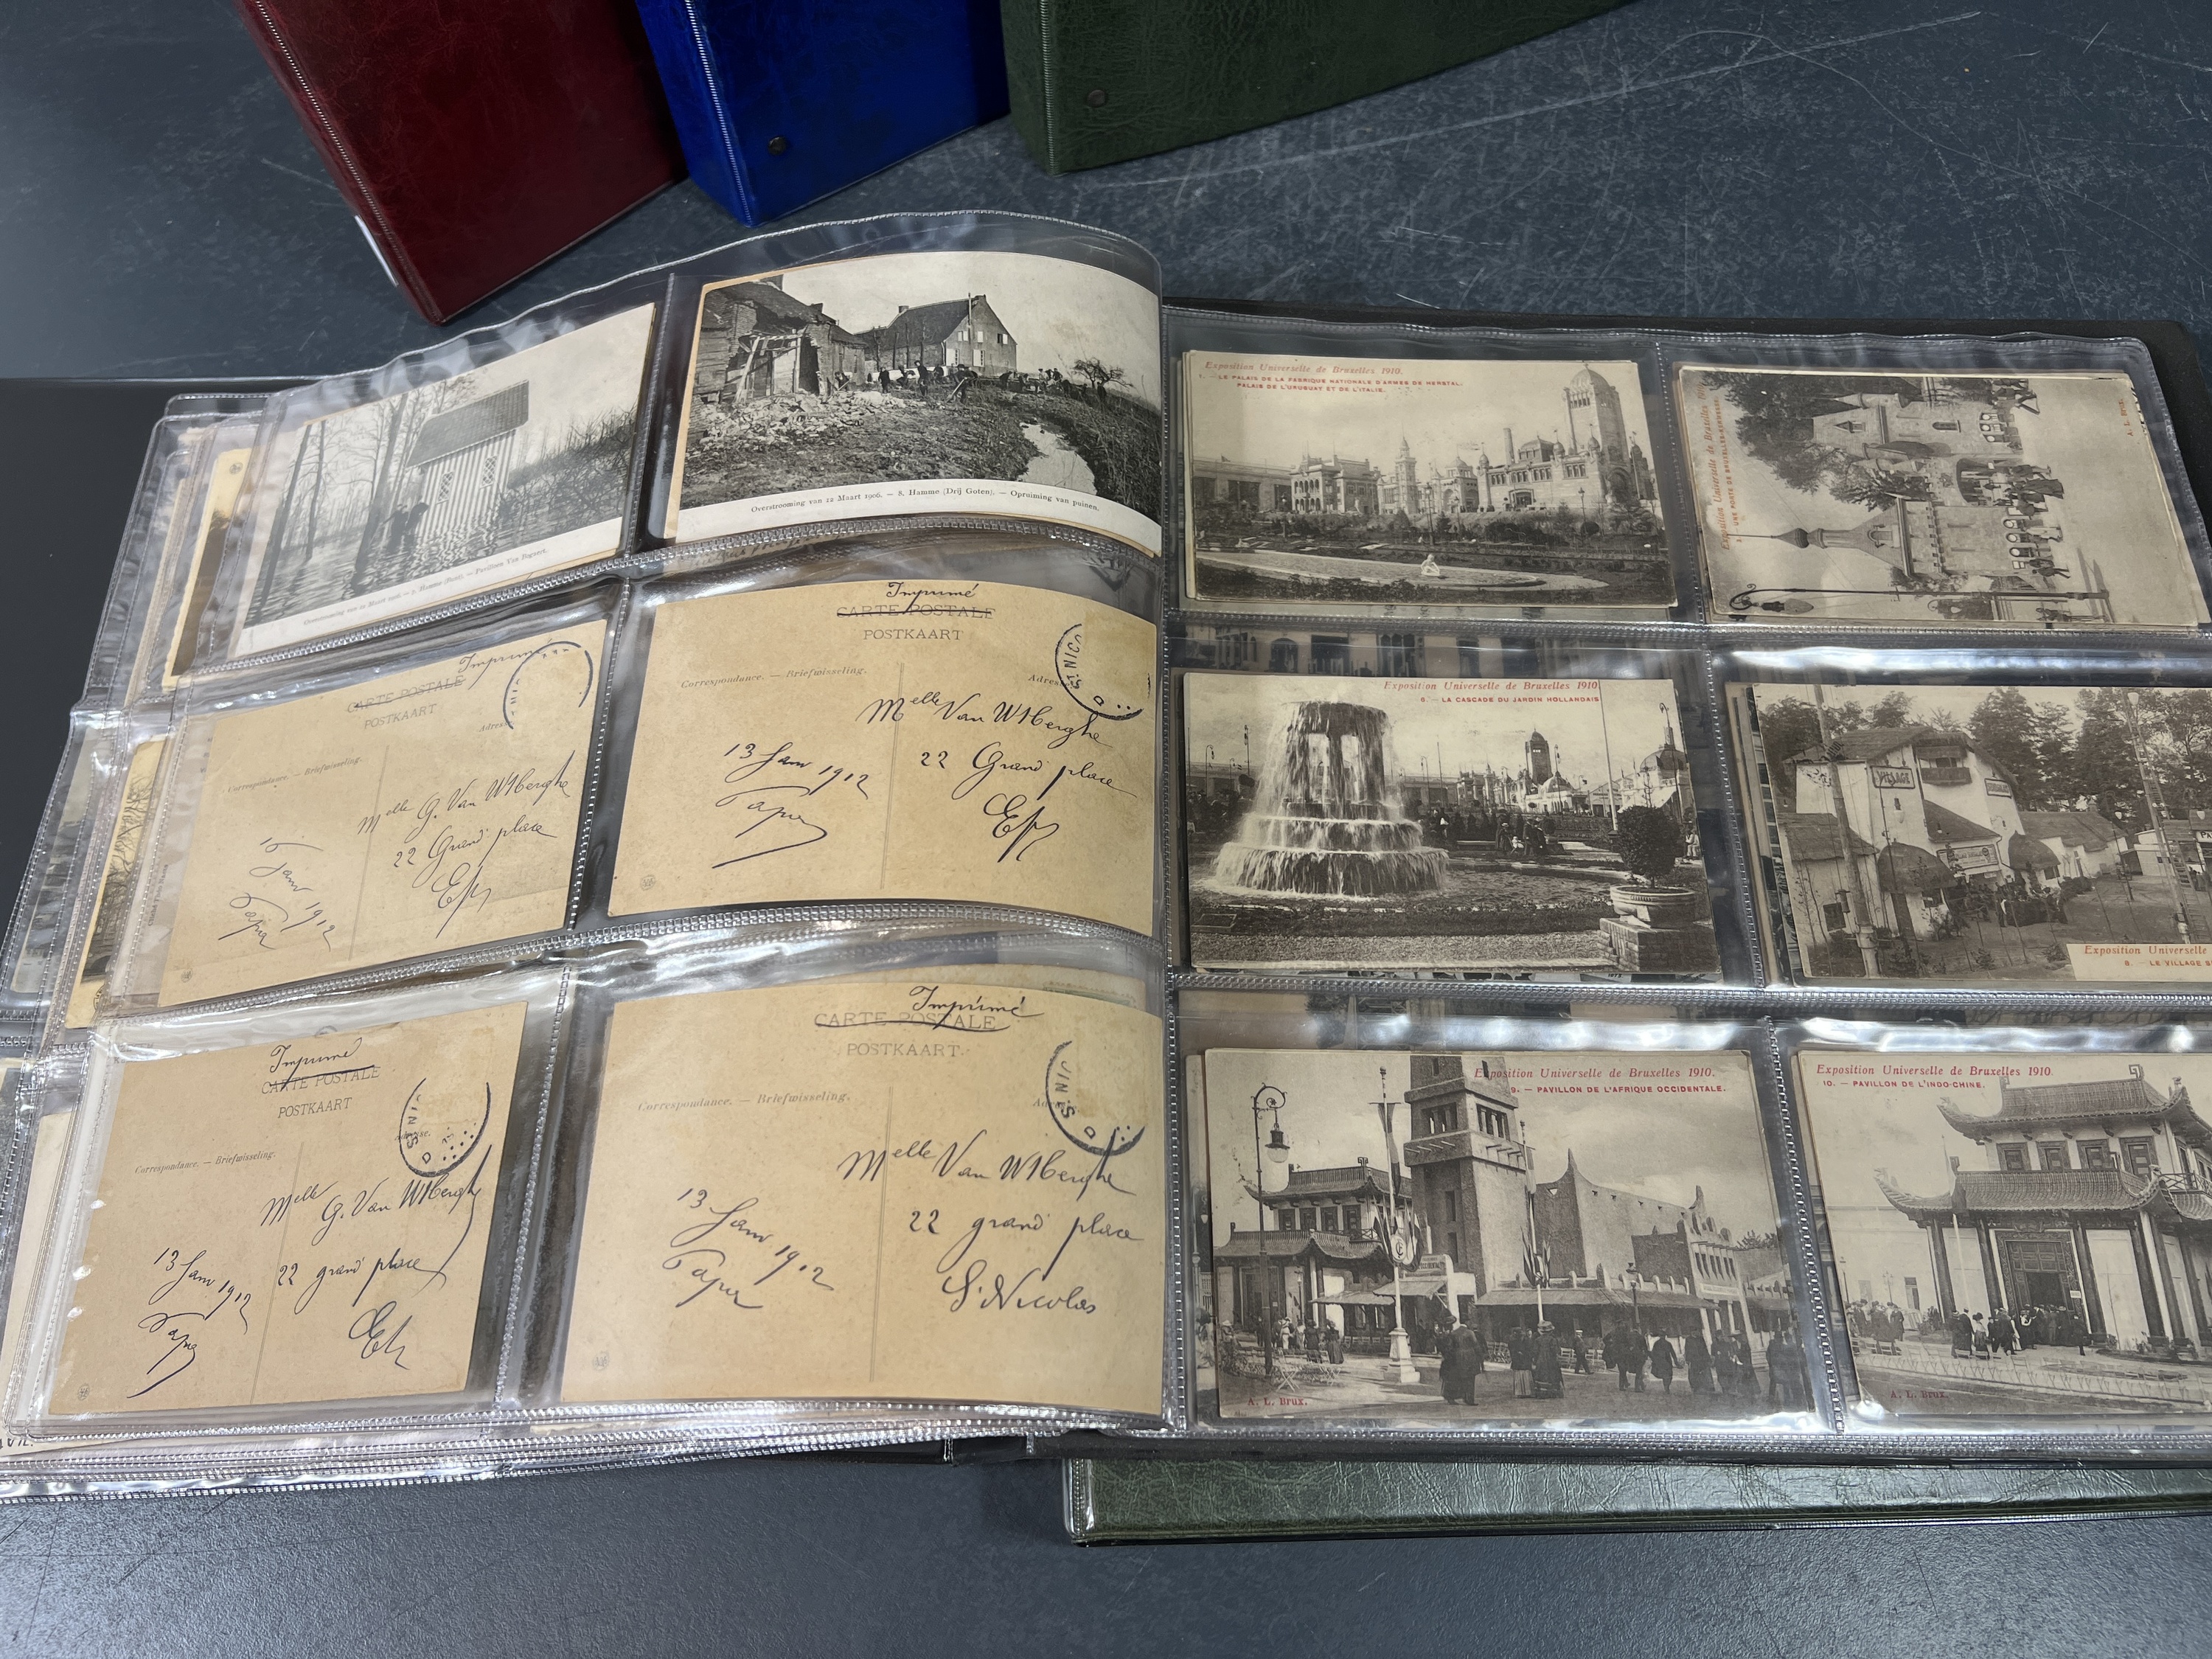 Overstrooming van 12 Maart 1906. — 7. Hamme (Bunt). — Paviljoen Van Bogaert.
Overstrooming van 12 Maart 1906. — 8. Hamme (Drij Goten). — Opruiming van puinen.
Imprimé
CARTE POSTALE
POSTKAART
Correspondance. — Briefwisseling.
Adres
Melle G. Van WtBerghe
22 Grand' place
E/V
16 Janv 1912
Imprimé
CARTE POSTALE
POSTKAART
Correspondance. — Briefwisseling.
Adres
ST NICO
D
Melle Van WtBerghe
22 Grand' place
E/V
13 Janv 1912
Imprimé
CARTE POSTALE
POSTKAART
Correspondance. — Briefwisseling.
Adresse.
D S! NI
Melle
G. Van WtBerghe
22 grand' place
13 Janv 1912
Imprimé
CARTE POSTALE
POSTKAART
Correspondance. — Briefwisseling.
D S! NI
Melle Van WtBerghe
22 grand' place
St Nicolas
13 Janv 1912
Exposition Universelle de Bruxelles 1910.
1. — LE PALAIS DE LA FABRIQUE NATIONALE D'ARMES DE HERSTAL.
PALAIS DE L'URUGUAY ET DE L'ITALIE.
Exposition Universelle de Bruxelles 1910
UNE PORTE DE BRUXELLES-KERMESSE.
A. L. Brux.
Exposition Universelle de Bruxelles 1910
6. — LA CASCADE DU JARDIN HOLLANDAIS
VILLAGE
Exposition Universelle
8. — LE VILLAGE S
Exposition Universelle de Bruxelles 1910.
9. — PAVILLON DE L'AFRIQUE OCCIDENTALE.
A. L. Brux.
Exposition Universelle de Bruxelles 1910.
10. — PAVILLON DE L'INDO-CHINE.
A. L. Brux.